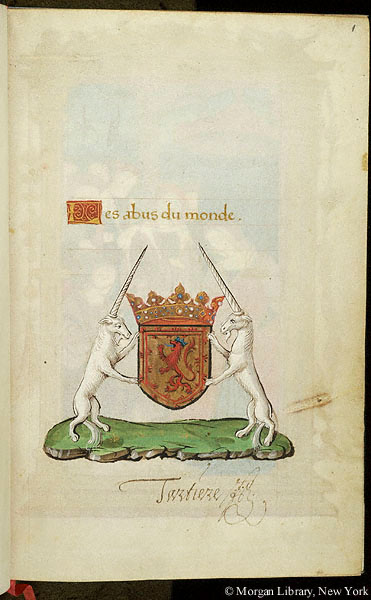 1
Les abus du monde.
Tartiere
© Morgan Library, New York